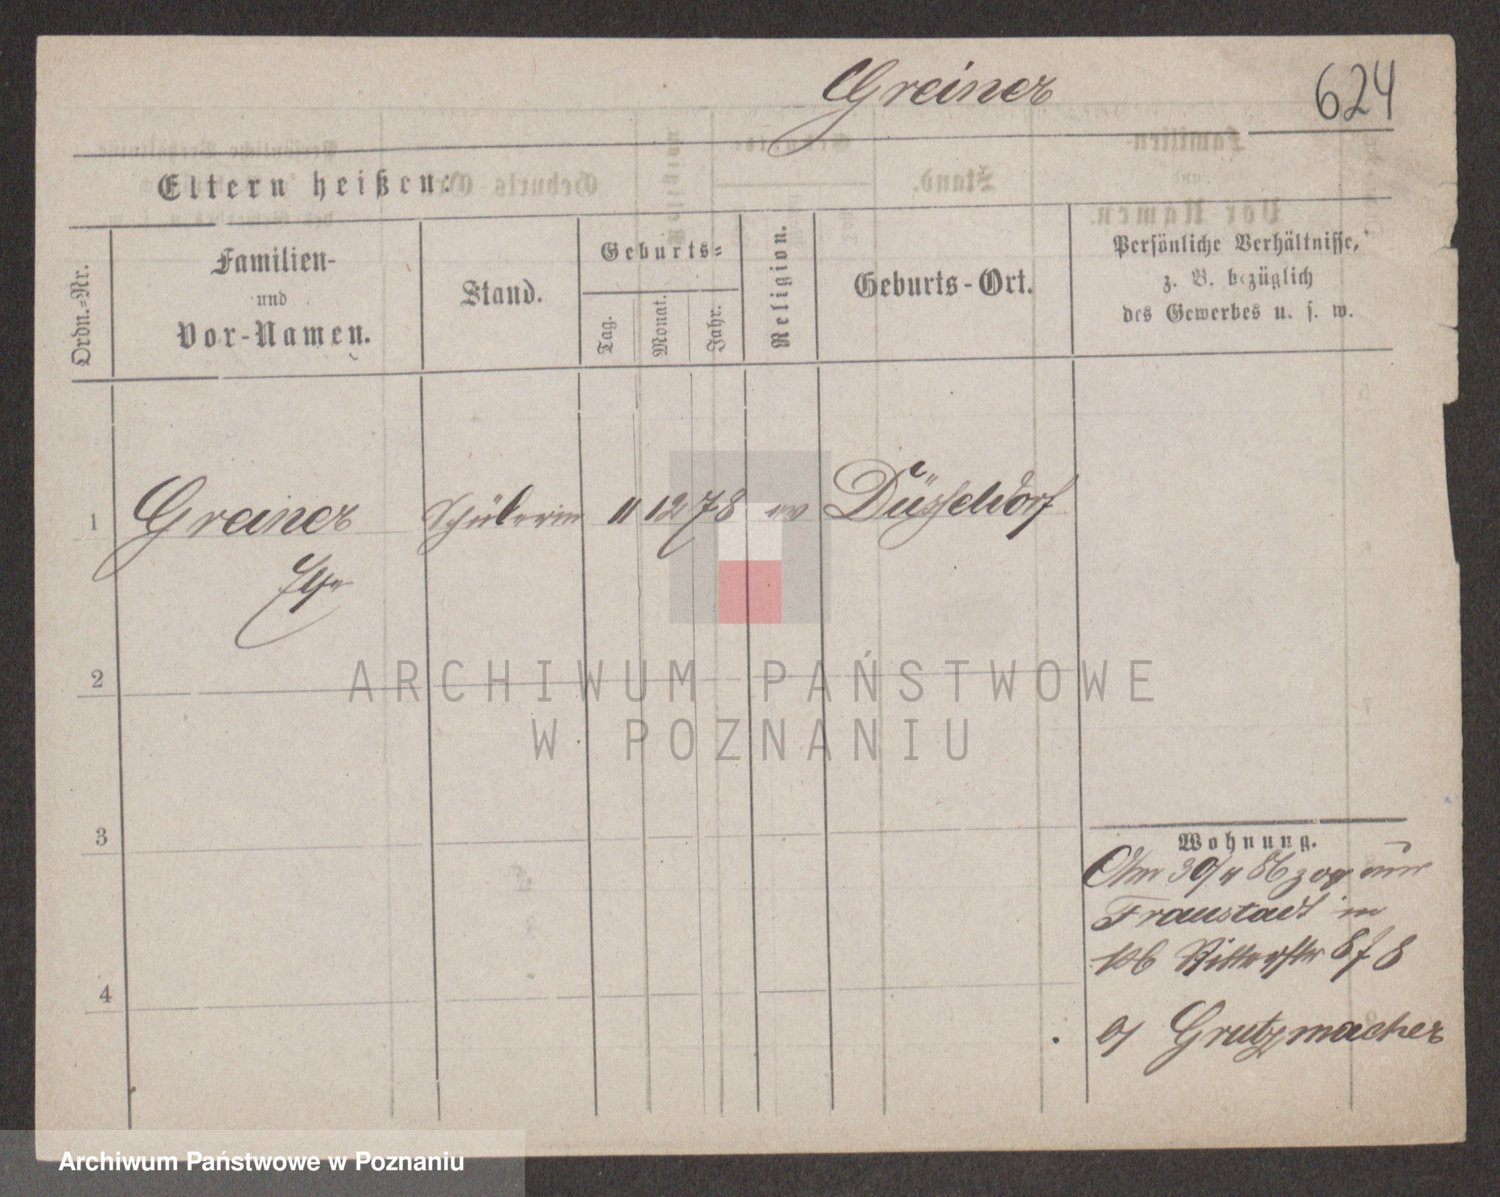 Greiner 624
Eltern heißen:
Ordn.-Nr.
Familien-
und
Vor-Namen.
Stand.
Geburts-
Tag.
Monat.
Jahr.
Religion.
Geburts-Ort.
Persönliche Verhältnisse,
z. B. bezüglich
des Gewerbes u. s. w.
1 Greiner Schülerin 11 12 78 ev Düsseldorf
2
3
4
Wohnung.
Am 30/4 86 zog
Fraustadt in
Ritterstr 8
Grutzmacher
ARCHIWUM PAŃSTWOWE
W POZNANIU
Archiwum Państwowe w Poznaniu